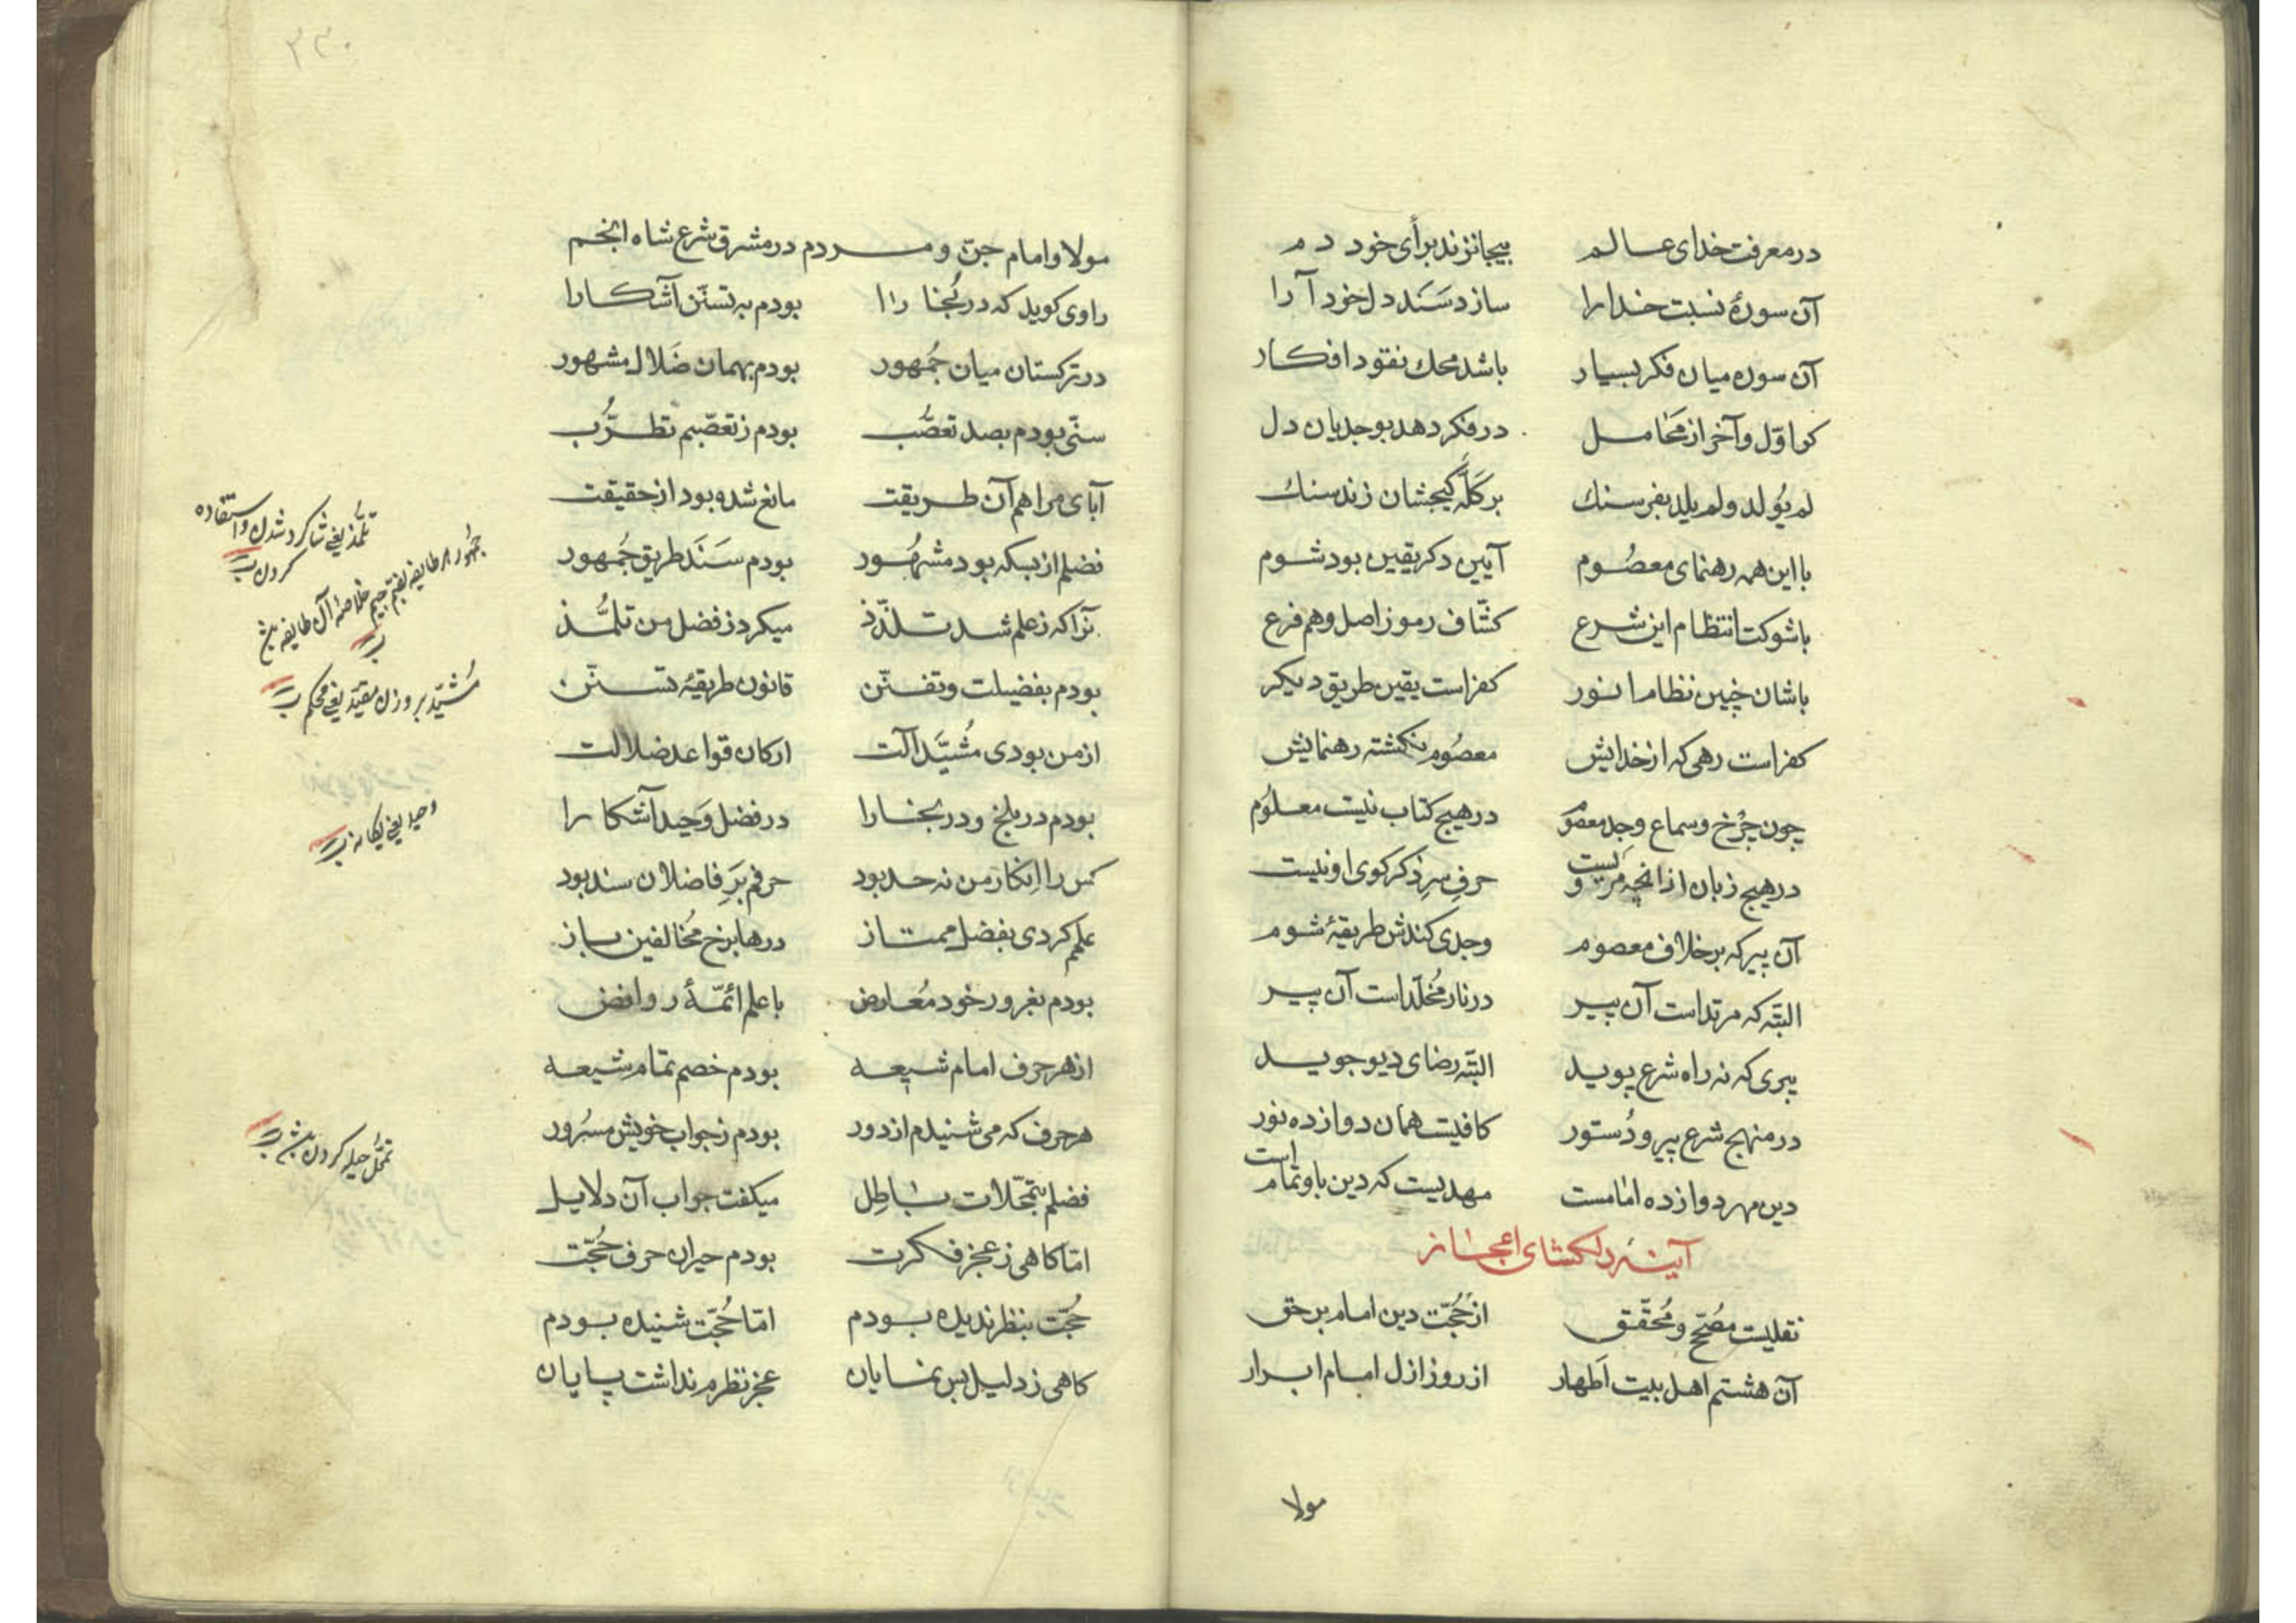 در معرفت خدای عالم بیجا نزند برأی خود دم
آن سورهٔ نسبت خدا را سازد سَنَد دل خود آرا
آن سوره میان فکر بسیار باشد محك نقود افکار
کو اوّل و آخر از مَحامل در فکر دهد بوجد یان دل
لم یُولد ولم یلد بفرسنك بر کلّه کیجشان زند سنك
با این همه رهنمای معصُوم آیین دکر یقین بود شوم
با شوکت انتظام این شرع کشّاف رموز اصل وهم فرع
با شان چنین نظام انور کفر است یقین طریق دیکر
کفر است رهی که از خدایش معصُوم نکشته رهنمایش
چون چرخ وسماع وجد معصوم در هیچ کتاب نیست معلوُم
در هیچ زبان از انچه مرویست حرفِ سرِ ذکر کوی او نیست
آن پیر که بر خلاف معصوم وجدی کندش طریقهٔ شوم
البتّه که مرتد است آن پیر در نار مُخلّد است آن پیر
پیری که نه راه شرع پوید البتّه رضای دیو جوید
در منهج شرع پیر و دُستور کافیست همان دوازده نور
دین مهر دوازده امامست مهدیست که دین باو تمام است
آینه دلکشای اعجاز
نقلیست مصُحّح و مُحقّق از حُجّت دین امام بر حق
آن هشتم اهل بیت اَطهار از روز ازل امام ابرار
مولا
۳۳۰
مولا وامام جنّ و مردم در مشرق شرع شاه انجم
راوی کوید که در بُخارا بودم به تسنّن آشکارا
در ترکستان میان جُمهور بودم بهمان ضَلال مشهور
سنّی بودم بصد تعصُّب بودم ز تعصّبم تطرُّب
آبای مرا هم آن طریقت مانع شده بود از حقیقت
فضلم از بسکه بود مشهُور بودم سَنَد طریق جُمهور
آنرا که ز علم شد تلذّذ میکرد ز فضل من تلمُّذ
بودم بفضیلت و تفنّن قانون طریقهٔ تسنّن
از من بودی مُشیَّد آلت ارکان قواعد ضلالت
بودم در بلخ و در بخارا در فضل وَحید آشکارا
کس را اِنکار من نه حد بود حرفم بَرِ فاضلان سند بود
علمم کردی بفضل ممتاز درها برخ مُخالفین باز
بودم بغرور خود مُعارض با علم ائمّهٔ روافض
از هر حرف امام شیعه بودم خصم تمام شیعه
هر حرف که می شنیدم از دور بودم ز جواب خویش مسرُور
فضلم بتمحّلات باطِل میکفت جواب آن دلایل
امّا کاهی ز عجز فکرت بودم حیران حرف حُجّت
حُجّت بنظر ندیده بودم امّا حُجّت شنیده بودم
کاهی ز دلیل بس نمایان عجز نظرم نداشت پایان
تلمُّذ یعنی شاکرد شدن و استفاده
کردن
جُمهور هر طایفه بضم جیم خلاصهٔ آن طایفه
مُشیّد بر وزن مقیّد یعنی محکم
وحید یعنی یکانه
تمحُّل حیله کردن